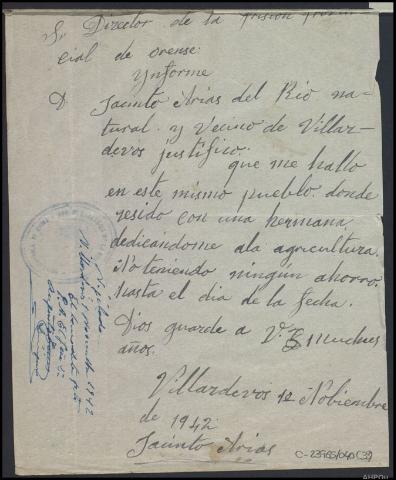 Sr Director de la prision provin
cial de orense.
Ynforme
D Jacinto Arias del Rio na-
tural. y Vecino de Villar-
devos justifico.
que me hallo
en este mismo pueblo. donde
resido con una hermana.
dedicandome ala agricultura.
No teniendo ningún ahorro.
hasta el dia de la fecha.
Dios guarde a V. S muchus
años.
Villardevos 12 Nobiembre
de 1942.
Jacinto Arias
1942
C-23985/040 (3)
AHPOu